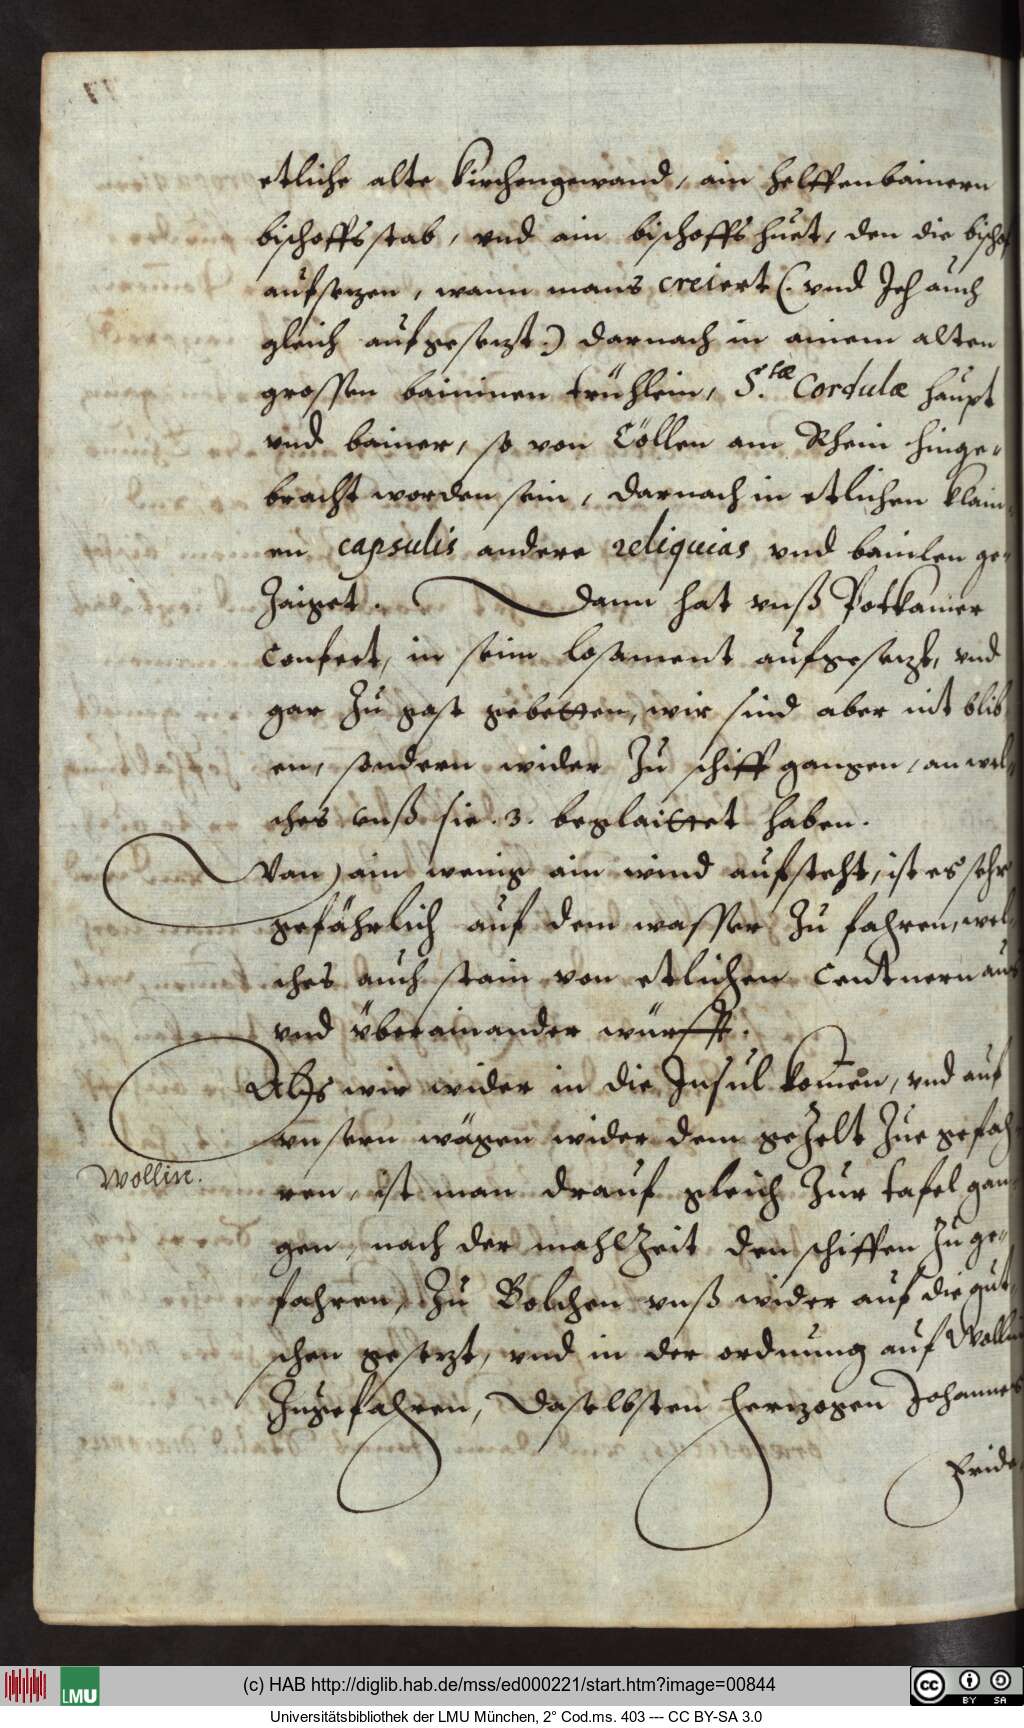 etliche alte Kirchengewand, ain helffenbainern
bischoffsstab, vnd ain bischoffs huet, den die bischof
aufsezen, wann mans creiert (. vnd Jch auch
gleich aufgesezt .) darnach in ainem alten
grossen baininen trühlein, S.tæ Cordulæ haupt
vnd bainer, so von Cöllen am Rhein hinge-
bracht worden sein, darnach in etlichen klain-
en capsulis andere reliquias vnd bainlen ge-
zaiget. Dann hat vnß Potkamer
Confect, in seim losament aufgesezt, vnd
gar zu gast gebetten, wir sind aber nit blib-
en, sondern wider zu schiff gangen, an wel-
ches vnß sie .3. beglaittet haben.
Wan ain wenig ain wind aufsteht, ist es sehr
gefährlich auf dem wasser zu fahren, wel-
ches auch stain von etlichen Centnern aus
vnd überainander würfft.
Alß wir wider in die Insul komen, vnd auf
vnsern wägen wider dem gezelt zue gefah-
Wollin.
ren, ist man drauf gleich zur tafel gan-
gen, nach der mahlzeit den schiffen zu ge-
fahren, zu Bolchen vnß wider auf die gut-
schen gesezt, vnd in der ordnung auf Wollin
zugefahren, daselbsten herzogen Johannes
Fride-
(c) HAB http://diglib.hab.de/mss/ed000221/start.htm?image=00844
Universitätsbibliothek der LMU München, 2° Cod.ms. 403 --- CC BY-SA 3.0
LMU
cc BY SA